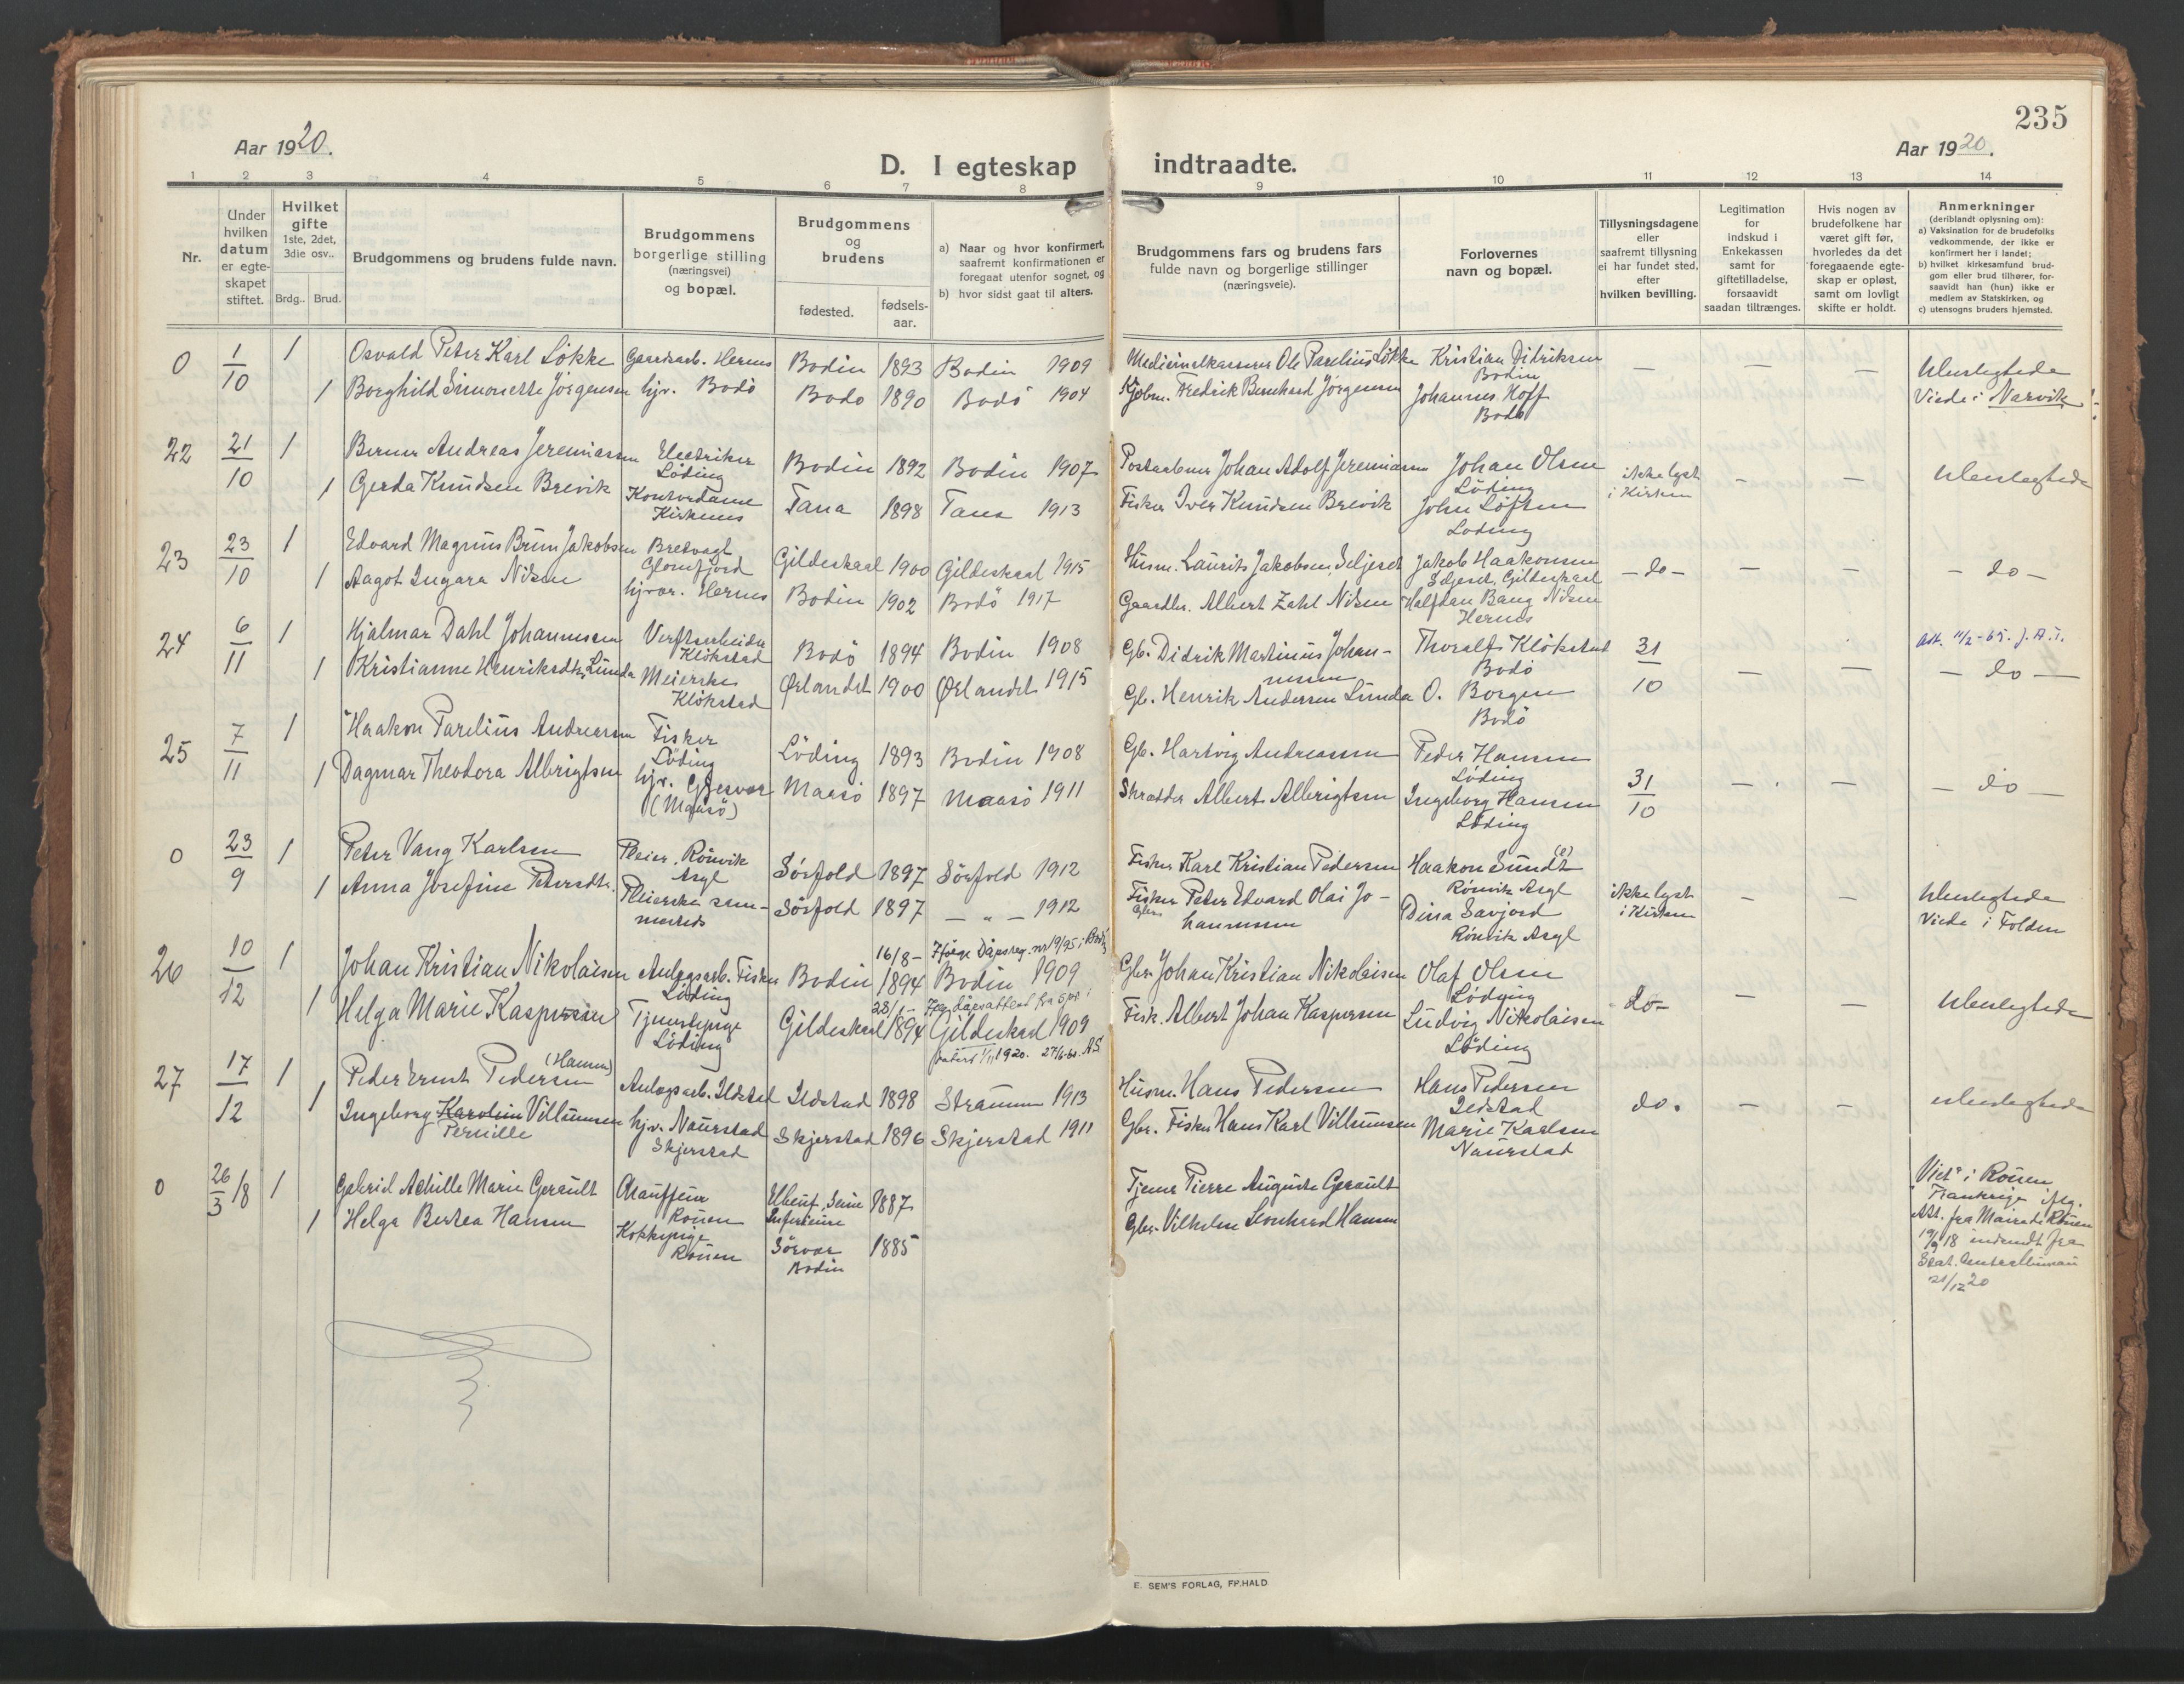 235
Aar 1920.
Aar 1920.
D. I egteskap indtraadte.
1 2 3 4 5 6 7 8 9 10 11 12 13 14
Nr.
Under hvilken datum er egteskapet stiftet.
Hvilket gifte 1ste, 2det, 3die osv..
Brdg.. Brud.
Brudgommens og brudens fulde navn.
Brudgommens borgerlige stilling (næringsvei) og bopæl.
Brudgommens og brudens
fødested.
fødselsaar.
a) Naar og hvor konfirmert, saafremt konfirmationen er foregaat utenfor sognet, og
b) hvor sidst gaat til alters.
Brudgommens fars og brudens fars fulde navn og borgerlige stillinger (næringsveie).
Forlovernes navn og bopæl.
Tillysningsdagene eller saafremt tillysning ei har fundet sted, efter hvilken bevilling.
Legitimation for indskud i Enkekassen samt for giftetilladelse, forsaavidt saadan tiltrænges.
Hvis nogen av brudefolkene har været gift før, hvorledes da det foregaaende egteskap er opløst, samt om lovligt skifte er holdt.
Anmerkninger (deriblandt oplysning om):
a) Vaksination for de brudefolks vedkommende, der ikke er konfirmert her i landet;
b) hvilket kirkesamfund brudgom eller brud tilhører, forsaavidt han (hun) ikke er medlem av Statskirken, og
c) utensogns bruders hjemsted.
0 1/10 1 Osvald Peter Karl Løkke Gaardsarb. Hernes Bodin 1893 Bodin 1909 Ole Parelius Løkke Kristian Didriksen Bodin — — — Ubeslegtede
1 Borghild Simonette Jørgensen hjv. Bodø Bodø 1890 Bodø 1904 Kjøbm. Fredrik Bernhard Jørgensen Johannes Hoff Bodø Viede i Narvik
22 21/10 1 Berner Andreas Jeremiassen Electriker Løding Bodin 1892 Bodin 1907 Postaabner Johan Adolf Jeremiassen Johan Olsen Løding ikke lyst i Kirken — — Ubeslegtede
1 Gerda Knudsen Brevik Kontordame Kirkenes Tana 1898 Tana 1913 Fisker Iver Knudsen Brevik John Løften Løding
23 23/10 1 Edvard Magnus Brun Jakobsen Glomfjord Gildeskaal 1900 Gildeskaal 1915 Husm. Laurits Jakobsen, Seljeset Jakob Haakonsen Seljeset, Gildeskaal — do — — — — do —
1 Aagot Ingara Nilsen hjvær. Hernes Bodin 1902 Bodø 1917 Gaardbr. Albert Zahl Nilsen Halfdan Bang Nilsen Hernes
24 6/11 1 Hjalmar Dahl Johannesen Verftsarbeider Kløkstad Bodø 1894 Bodin 1908 Gb. Didrik Martinus Johannesen Thoralf Kløkstad Bodø 31/10 — — Att. 11/2-65. J.A.T.
1 Kristianne Henriksdtr. Lunda Meierske Kløkstad Ørlandet 1900 Ørlandet 1915 Gb. Henrik Andersen Lunda O. Borgen Bodø — do —
25 7/11 1 Haakon Parelius Andreassen Fisker Løding Løding 1893 Bodin 1908 Gb. Hartvig Andreassen Peder Hansen Løding 31/10 — — — do —
1 Dagmar Theodora Albrigtsen hjv. Gjesvær (Maasø) Maasø 1897 Maasø 1911 Skrædder Albert Albrigtsen Ingeborg Hansen Løding
0 23/9 1 Peter Vang Karlsen Pleier, Rönvik Asyl Sörfold 1897 Sörfold 1912 Fisker Karl Kristian Pedersen Haakon Sundt (e) Rönvik Asyl ikke lyst i Kirken — — Ubeslegtede
1 Anna Josefine Petersdtr. Pleierske sammesteds Sörfold 1897 — „ — 1912 Fisker Gbr. Peter Edvard Olai Johannessen Dina Savjord Rönvik Asyl Viede i Folden
26 10/12 1 Johan Kristian Nikolaisen Anlægsarb. Fisker Løding Bodin 16/8-1894 Ifølge Dåpsreg. nr 19/95 i Bodin Bodin 1909 Gbr. Johan Kristian Nikolaisen Olaf Olsen Løding do — — — Ubeslegtede
1 Helga Marie Kaspersen Tjenestepige Løding Gildeskaal 28/1-1894 Gildeskaal 1909 datert 1/11 1920. 27/6-60. AS Fisk. Albert Johan Kaspersen Ludvig Nikolaisen Løding
27 17/12 1 Peder Ernst Pedersen (Hansen) Anlægsarb. Ildstad Ildstad 1898 Straumen 1913 Husm. Hans Pedersen Hans Pedersen Ildstad do. — — ubeslegtede
1 Ingeborg Karolin Pernille Villumsen hjv. Naurstad Skjerstad Skjerstad 1896 Skjerstad 1911 Gbr. Fisker Hans Karl Villumsen Marie Karlsen Naurstad
0 26/3 18 1 Gabriel Achille Marie Gerault Chauffeur Rouen Elbeuf, Seine Inferieure 1887 Tjener Pierre Auguste Gerault Viet i Rouen, Frankrige iflg. Att. fra Mairie de Rouen 19/9 18 indsendt fra Stat. Centralbureau 21/12 20
1 Helga Bertea Hansen Kokkepige Rouen Sørvær Bodin 1885 Gbr. Vilhelm Leonhard Hansen
E. SEM'S FORLAG, FR.HALD